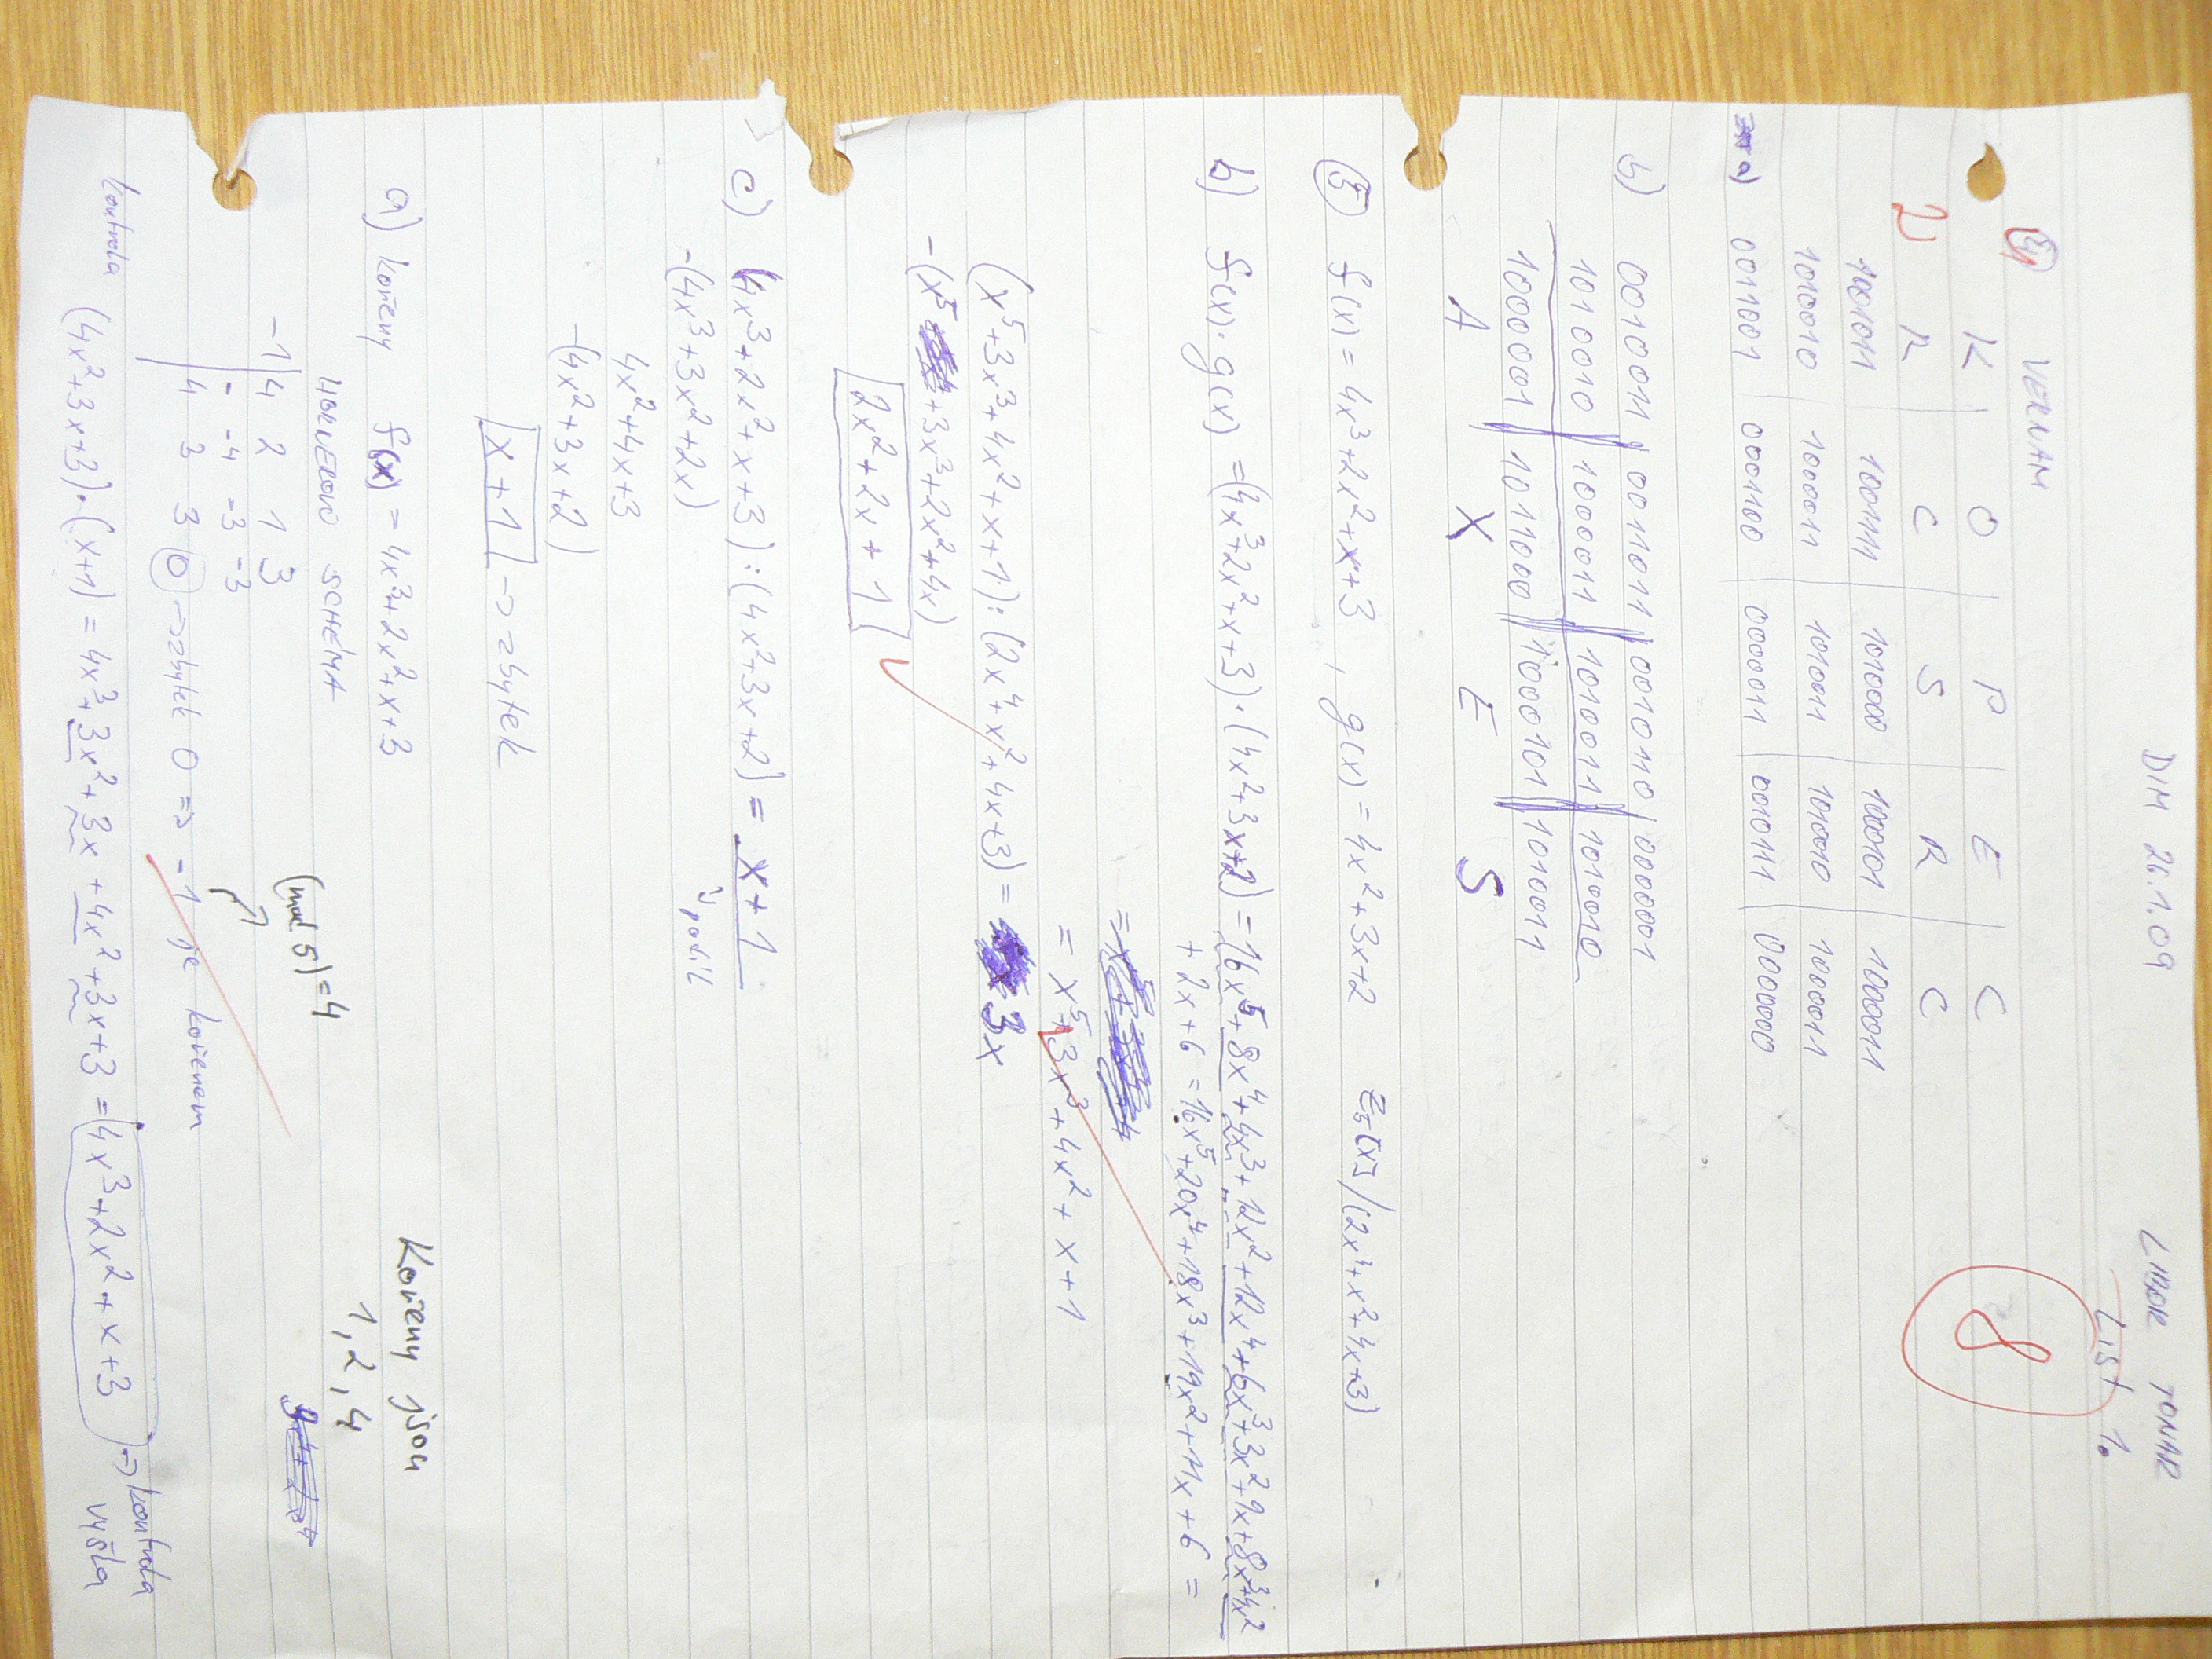 DIM 26.1.09
List 1.
④ VERNAM
8
K O P E C
2) R C S R C
1001011 1001111 1010000 1000101 1000011
1010010 1000011 1010011 1010010 1000011
a) 0011001 0001100 0000011 0010111 0000000
b) 0010011 0011011 0010110 0000001
1010010 1000011 1010011 1010010
1000001 1011000 1000101 1010011
A X E S
⑤ f(x) = 4x³+2x²+x+3 , g(x) = 4x²+3x+2 Z₅[x]/(2x⁴+x²+4x+3)
b) f(x)·g(x) = (4x³+2x²+x+3)·(4x²+3x+2) = 16x⁵+8x⁴+4x³+12x²+12x⁴+6x³+3x²+9x+8x³+4x²
+2x+6 = 16x⁵+20x⁴+18x³+19x²+11x+6 =
= x⁵+3x³+4x²+x+1
(x⁵+3x³+4x²+x+1):(2x⁴+x²+4x+3) = 3x
-(x⁵+3x³+2x²+4x)
2x²+2x+1
c) (4x³+2x²+x+3):(4x²+3x+2) = x+1
-(4x³+3x²+2x) podíl
4x²+4x+3
-(4x²+3x+2)
x+1 -> zbytek
a) kořeny f(x) = 4x³+2x²+x+3
Kořeny jsou
1, 2, 4
HORNEROVO SCHÉMA
(mod 5) = 4
-1 | 4 2 1 3
- -4 -3 -3
4 3 3 0 -> zbytek 0 => -1 je kořenem
kontrola (4x²+3x+3)·(x+1) = 4x³+3x²+3x+4x²+3x+3 = 4x³+2x²+x+3 => kontrola
vyšla